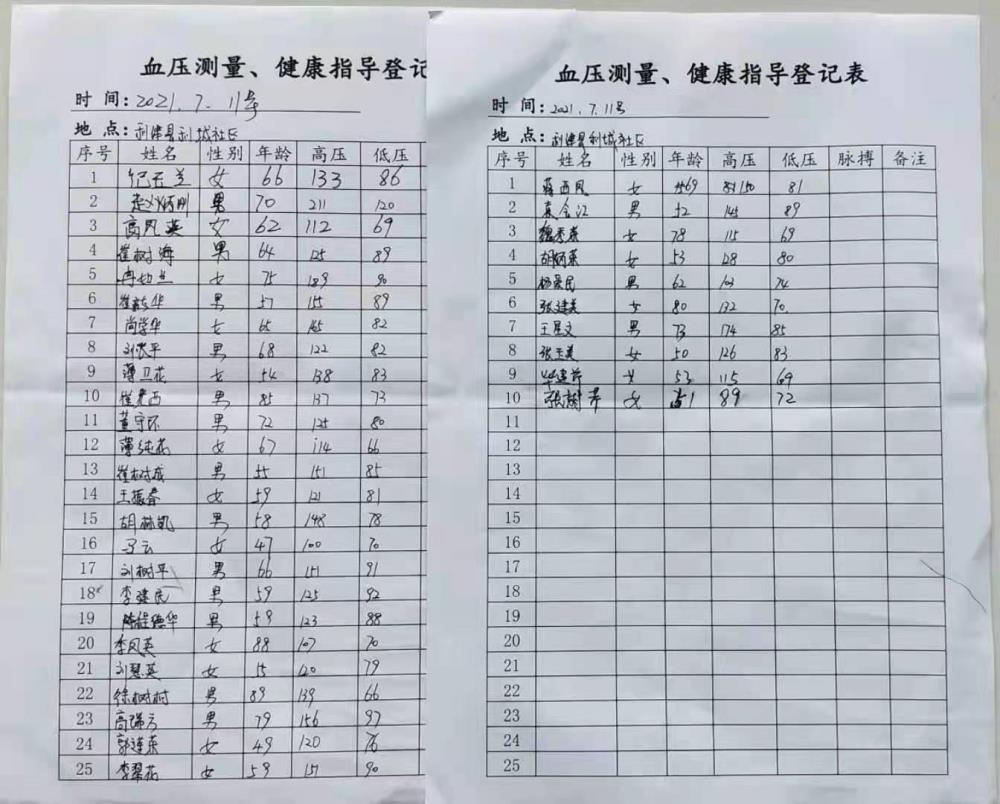 血压测量、健康指导登记
时 间：2021.7.11号
地 点：利津县利城社区
序号 姓名 性别 年龄 高压 低压
1 女 66 133 86
2 男 70 211 120
3 高凤英 女 62 112 69
4 崔树海 男 64 125 89
5 女 75 189 90
6 崔新华 男 57 155 89
7 尚学华 女 65 82
8 刘长平 男 68 122 82
9 薄卫花 女 54 138 83
10 男 85 137 73
11 董守环 男 72 125 80
12 薄纯花 女 67 114 66
13 崔树成 男 55 151 85
14 王振春 女 59 121 81
15 胡林凯 男 58 148 78
16 马云 女 47 100 70
17 刘树平 男 66 151 91
18 李建民 男 59 125 92
19 德华 男 59 123 88
20 李凤英 女 88 107 70
21 刘慧英 女 55 120 79
22 徐树村 男 89 139 66
23 高瑞方 男 79 156 97
24 郭连荣 女 49 120 76
25 李翠花 女 59 151 90
血压测量、健康指导登记表
时 间：2021.7.11号
地 点：利津县利城社区
序号 姓名 性别 年龄 高压 低压 脉搏 备注
1 蒋西凤 女 69 150 81
2 袁会江 男 52 145 89
3 魏秀荣 女 78 115 69
4 胡炳荣 女 53 128 80
5 杨爱民 男 62 103 74
6 张建英 女 80 132 70
7 王星文 男 73 174 85
8 张玉美 女 50 126 83
9 女 53 115 69
10 女 51 89 72
11
12
13
14
15
16
17
18
19
20
21
22
23
24
25